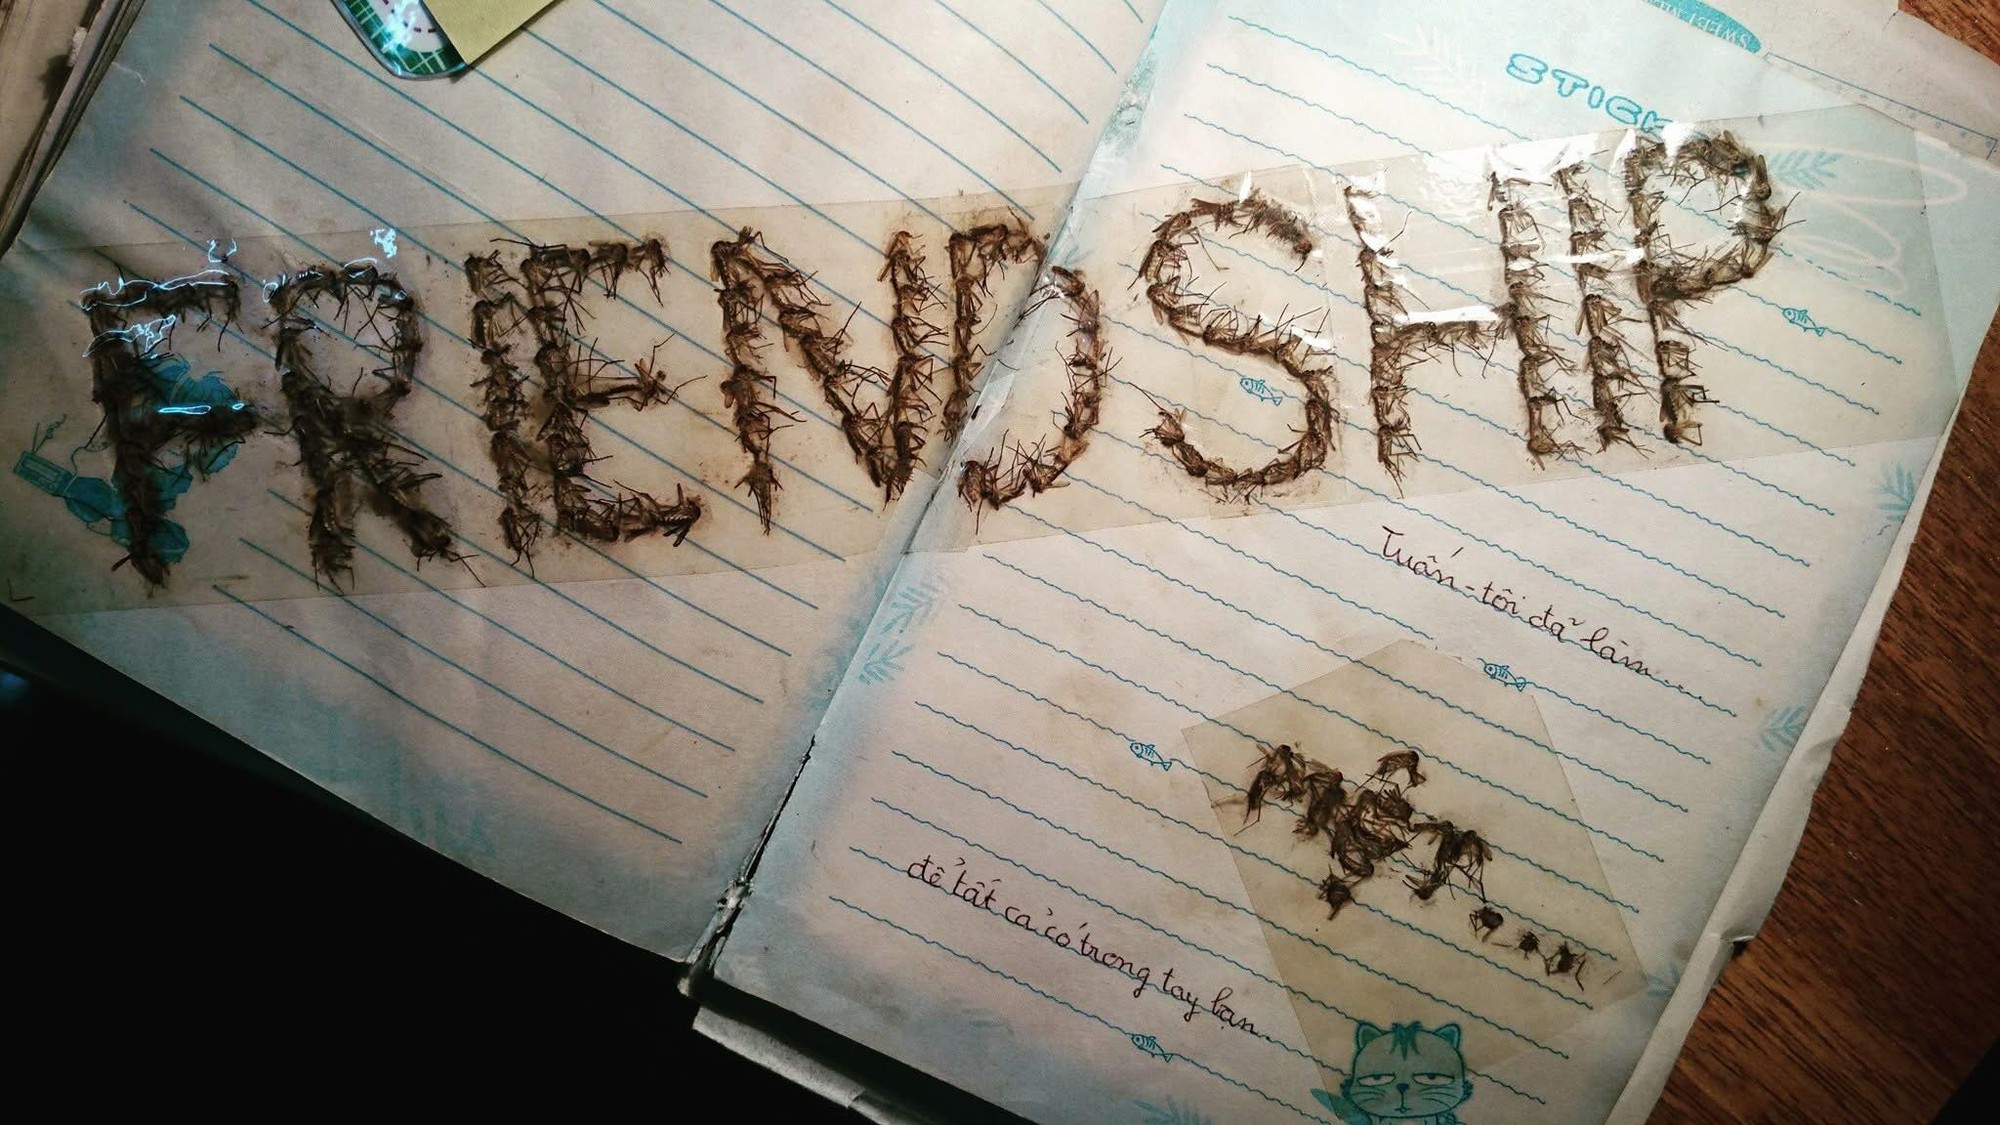 STICK
FRIENDSHIP
Tuấn - tôi đã làm......
để tất cả có trong tay bạn.